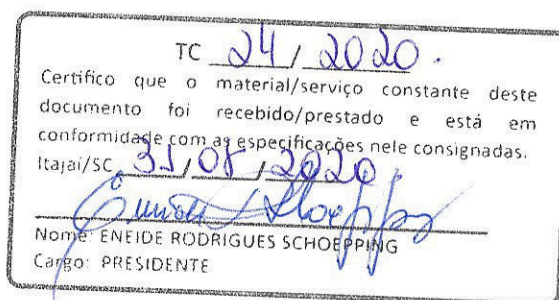 TC 24 / 2020.
Certifico que o material/serviço constante deste
documento foi recebido/prestado e está em
conformidade com as especificações nele consignadas.
Itajaí/SC 31 / 08 / 2020.
Nome: ENEIDE RODRIGUES SCHOEPPING
Cargo: PRESIDENTE